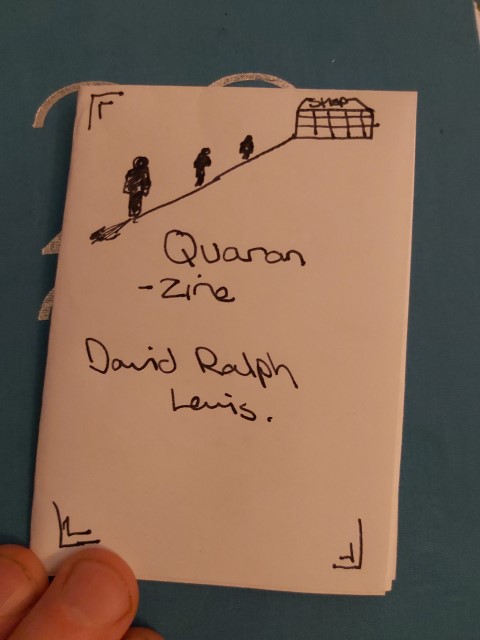 SHOP
Quaran
-Zine
David Ralph
Lewis.